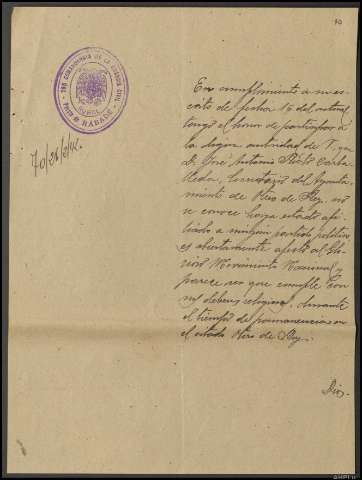 70
COMANDANCIA DE LA GUARDIA CIVIL
LUGO
RABADE
En cumplimiento a su es-
crito de fecha 16 del actual
tengo el honor de participar a
la digna autoridad de V. que
D. José Antonio
Secretario del Ayunta-
miento de Otero de Rey, no
se conoce haya estado afi-
liado a ningún partido político
es abiertamente afecto al Glo-
rioso Movimiento Nacional y
parece ser que cumple con
sus deberes religiosos, durante
el tiempo de permanencia en
el citado Otero de Rey.
Dios